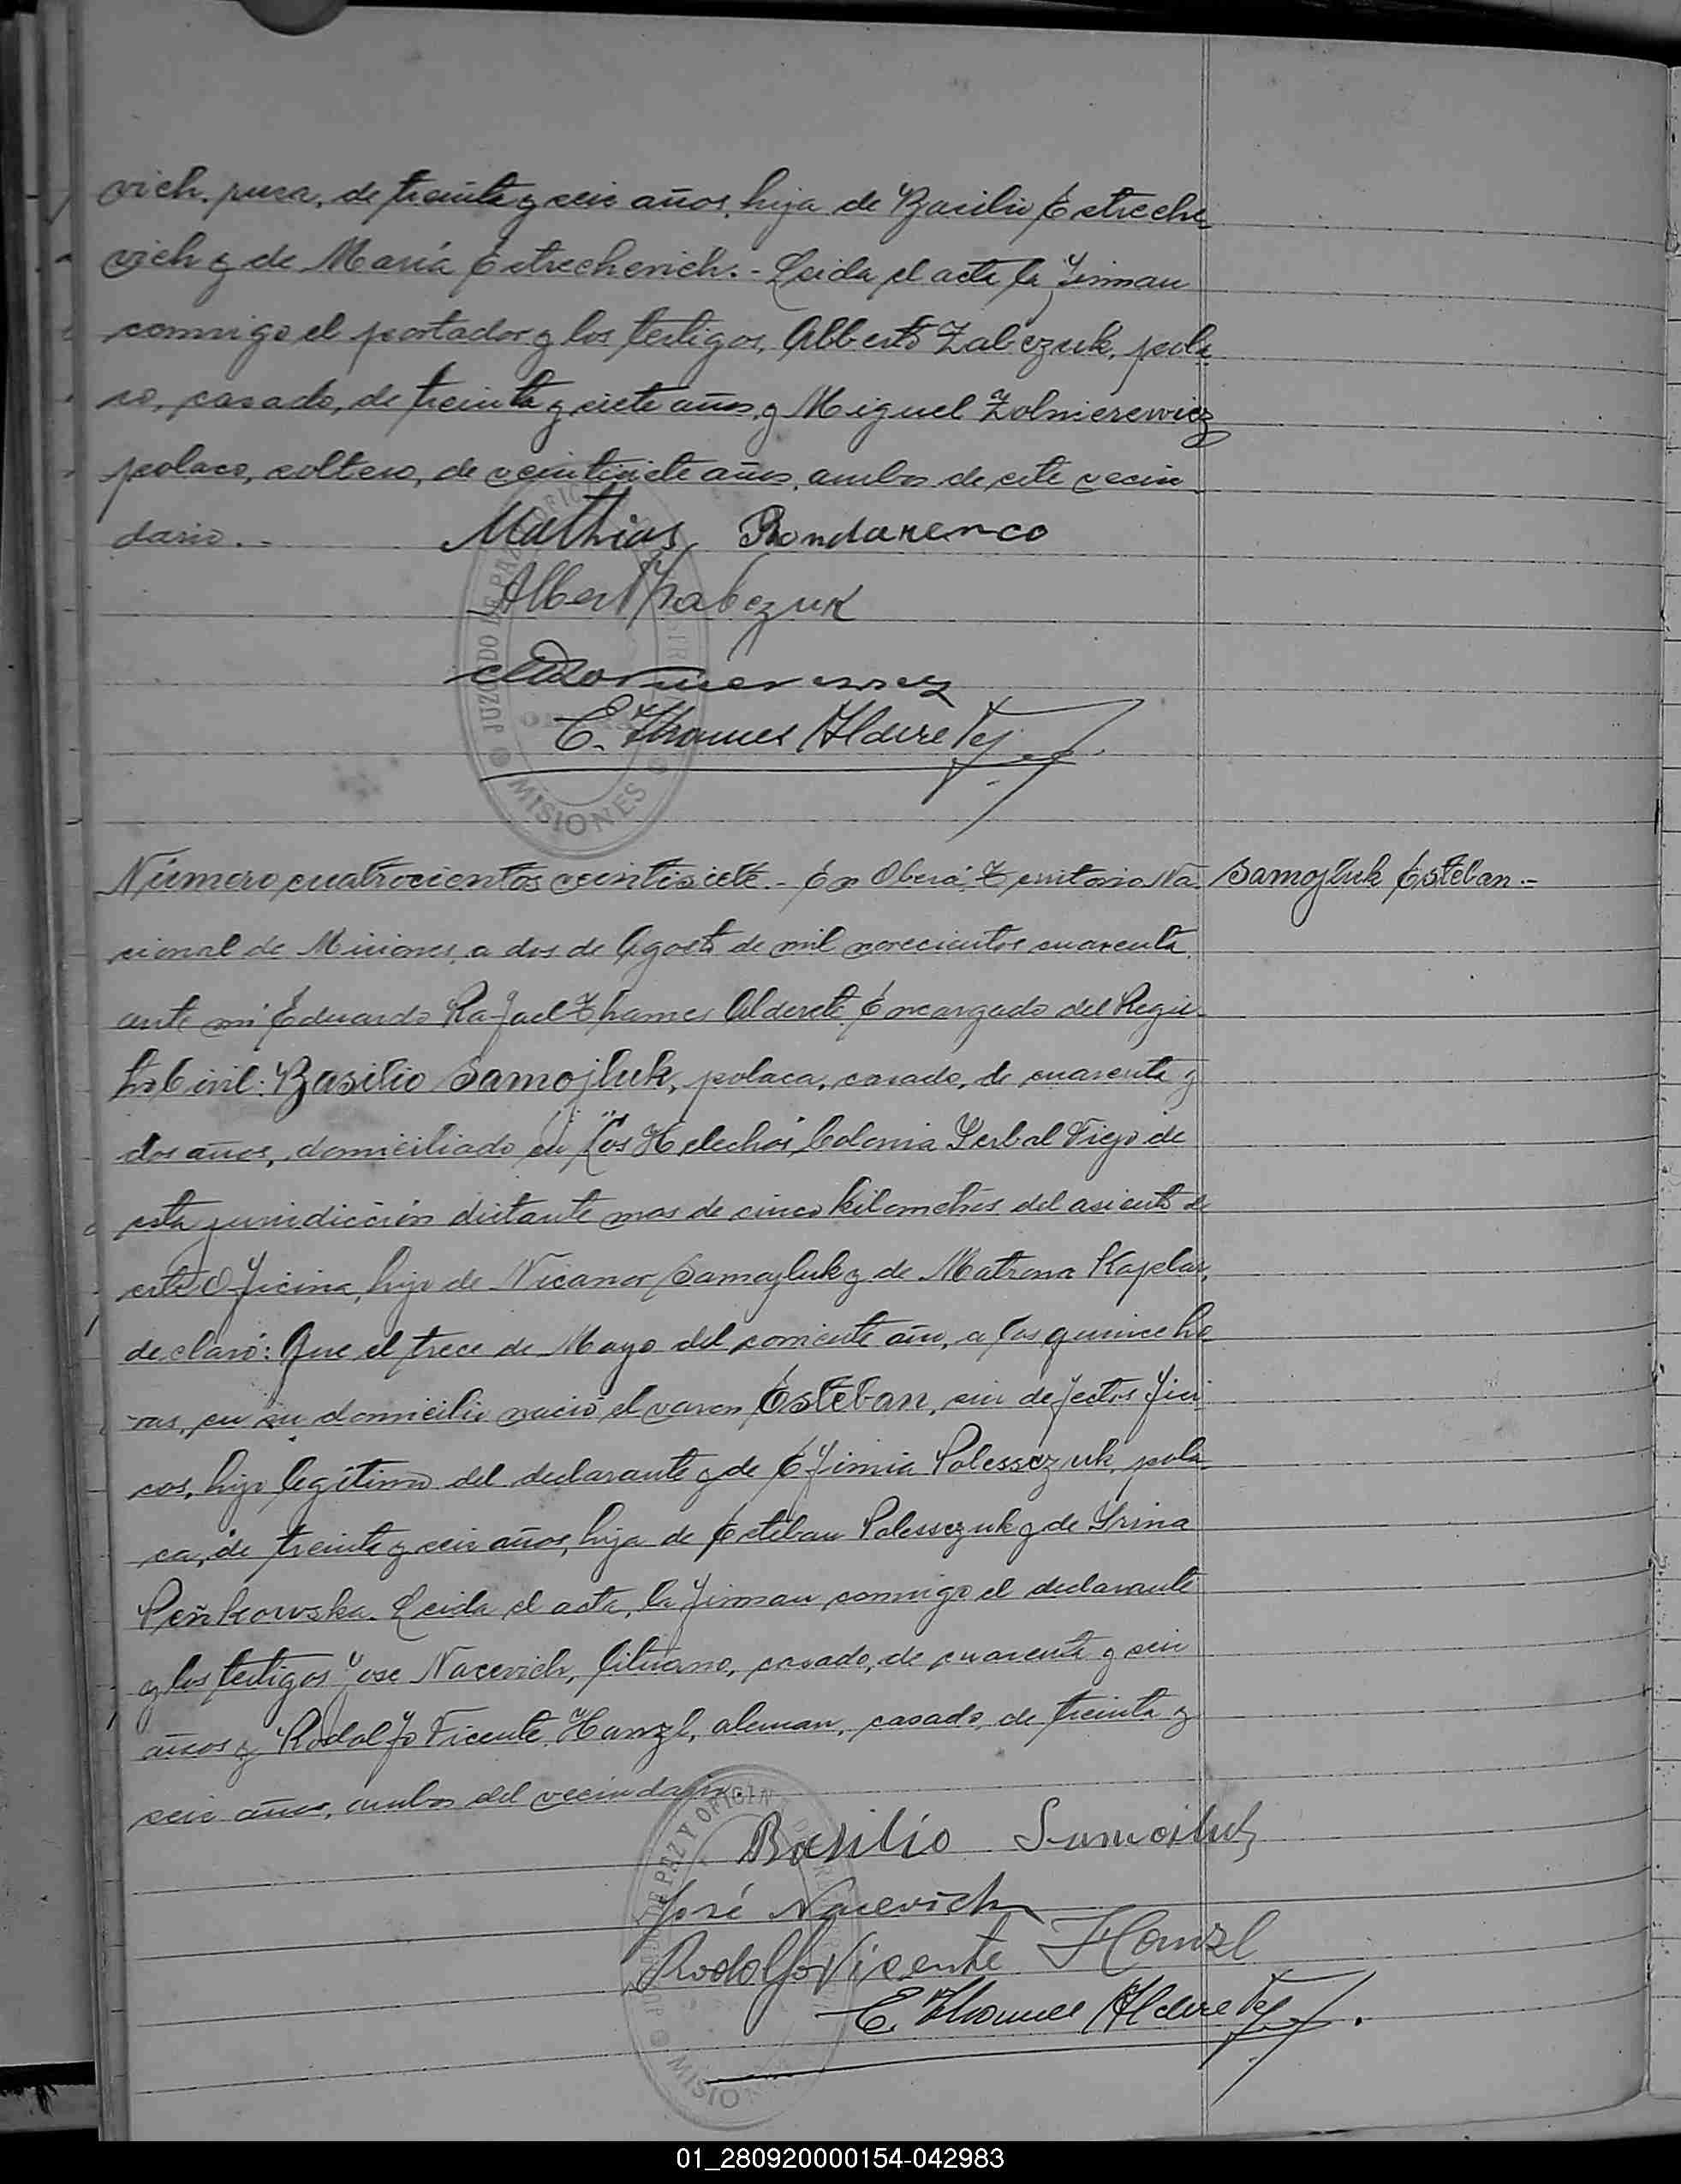 vich, rusa, de treinta y seis años, hija de Basilio Estreche
vich y de María Estrechevich.- Leida el acta la firman
conmigo el portador y los testigos, Alberto Zabczuk, pola
co, casado, de treinta y siete años, y Miguel Zolnierewicz
polaco, soltero, de veintisiete años, ambos de este vecin
dario.-
Mathias Bondarenco
Albert Zabczuk
E. Thames Alderete
JUZGADO DE PAZ OFICI
MISIONES
Número cuatrocientos veintisiete.- En Oberá, Territorio Na Samojluk Esteban.-
cional de Misiones, a dos de Agosto de mil novecientos cuarenta
ante mi Eduardo Rafael Thames Alderete, Encargado del Regis
tro Civil: Basilio Samojluk, polaca, casado, de cuarenta y
dos años, domiciliado en "Los Helechos" Colonia Yerbal Viejo de
esta jurisdicción distante mas de cinco kilometros del asiento de
esta Oficina, hijo de Nicanor Samojluk y de Matrona Kaplar,
declaró: Que el trece de Mayo del corriente año, a las quince ho
ras, en su domicilio nació el varon Esteban, sin defectos fisi
cos, hijo legítimo del declarante y de Efimia Polessczuk, pola
ca, de treinta y seis años, hija de Esteban Polessczuk y de Irina
Peñkowska. Leida el acta, la firman conmigo el declarante
y los testigos José Nacevich, lituano, casado, de cuarenta y seis
años y Rodolfo Vicente Hanzl, aleman, casado, de treinta y
seis años, ambos del vecindario.
Basilio Samojluk
José Nacevich
Rodolfo Vicente Hanzl
E. Thames Alderete
DE PAZ Y OFICIN
MISIO
01_280920000154-042983